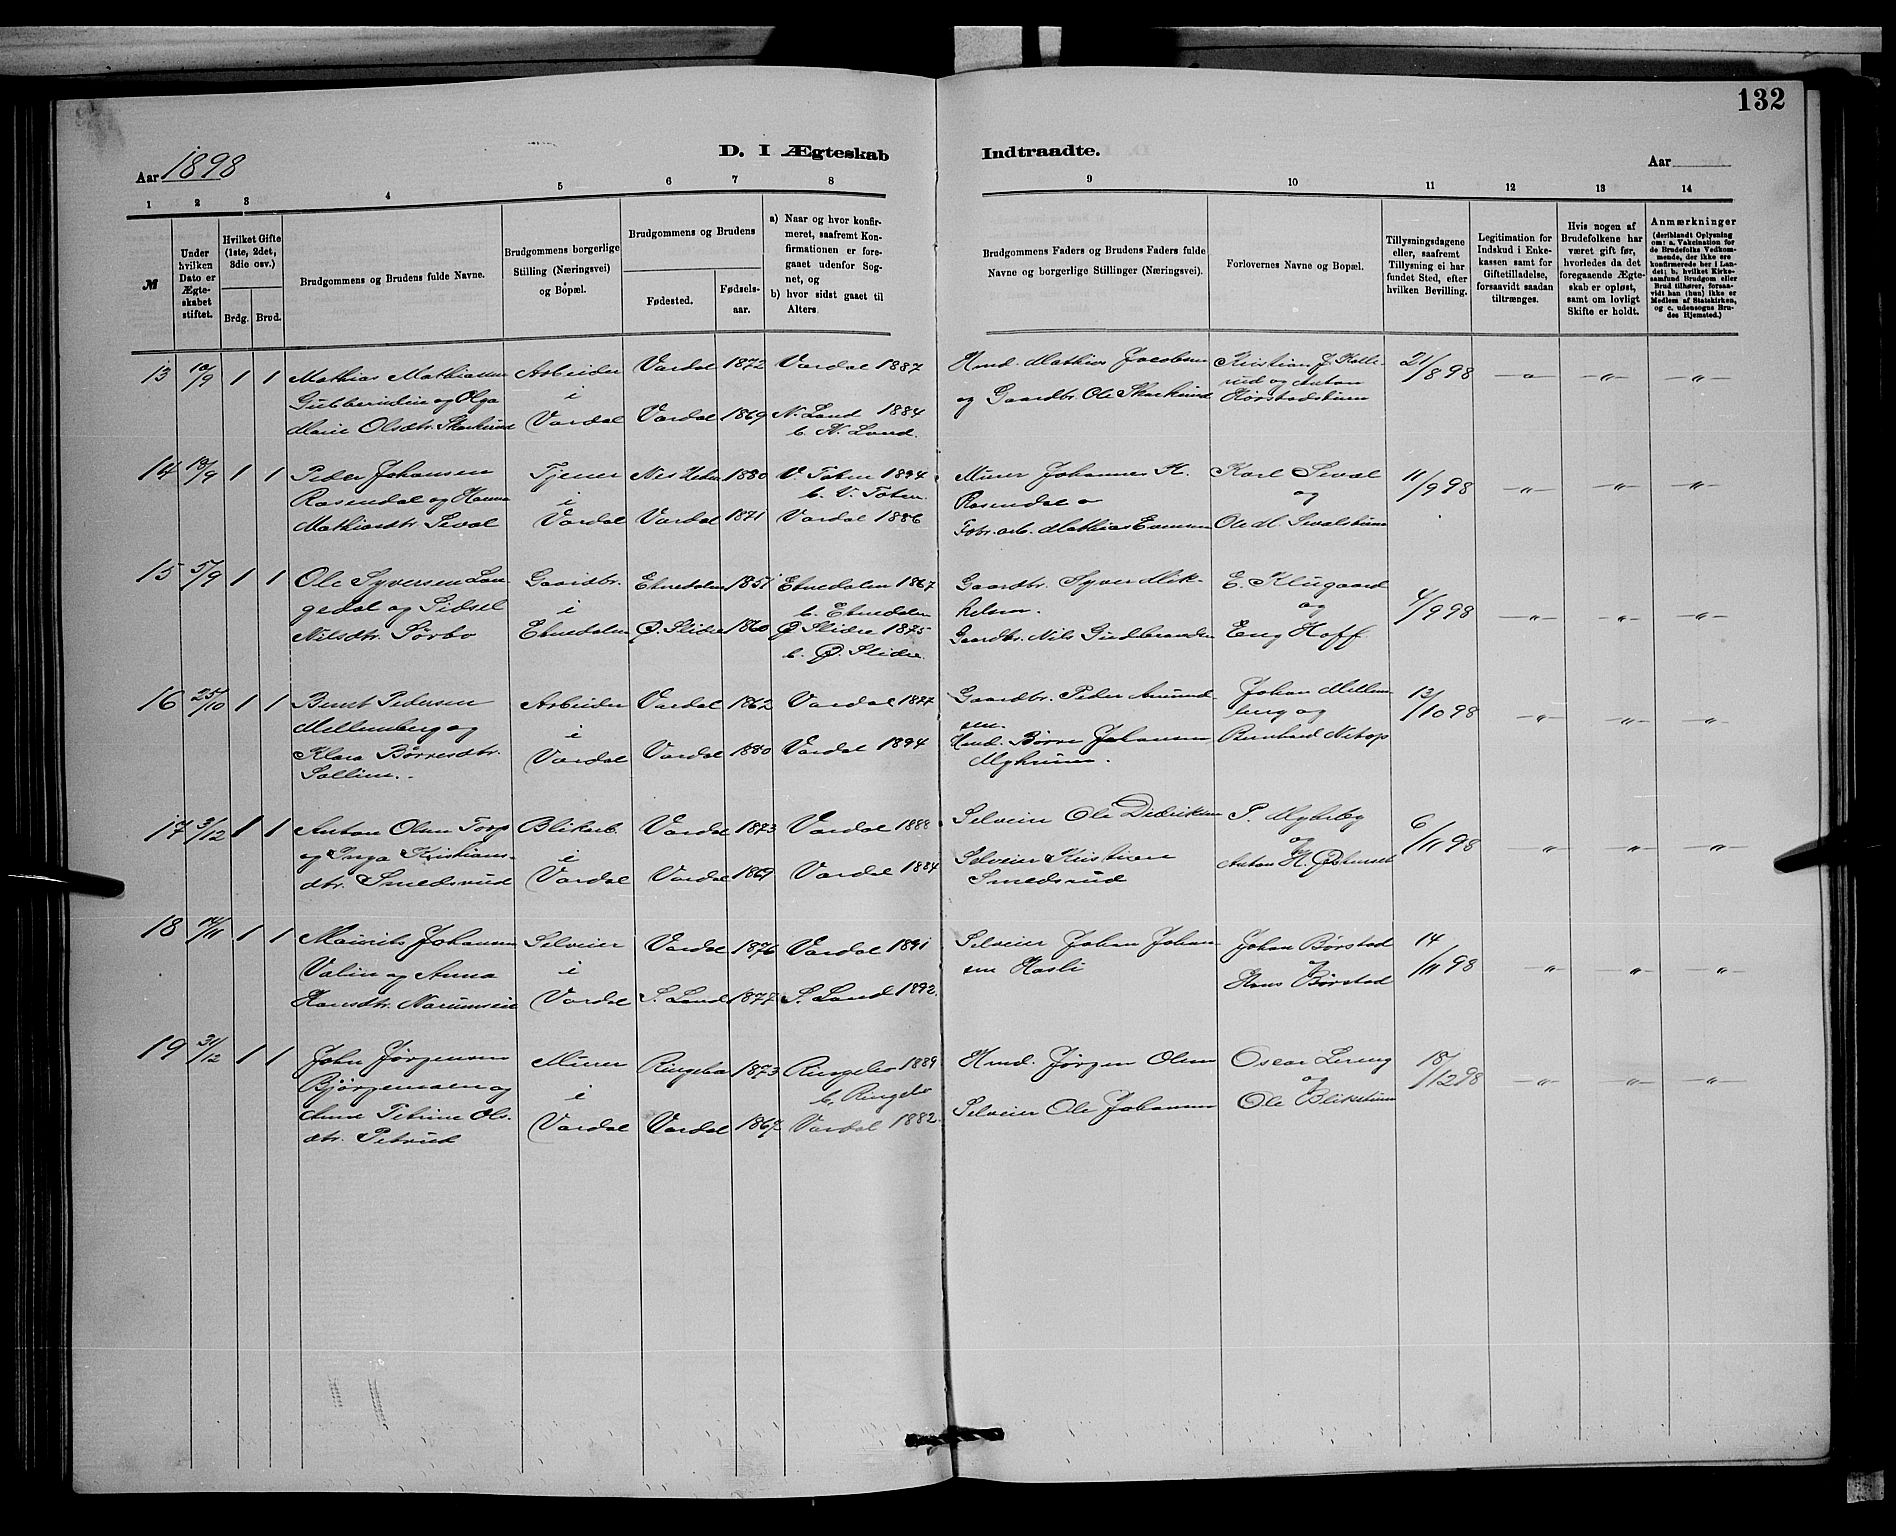 132
D. I Ægteskab Indtraadte.
Aar 1898
Aar
1 2 3 4 5 6 7 8 9 10 11 12 13 14
№
Under hvilken Dato er Ægteskabet stiftet.
Hvilket Gifte (1ste, 2det, 3die osv.)
Brdg. Brud.
Brudgommens og Brudens fulde Navne.
Brudgommens borgerlige Stilling (Næringsvei) og Bopæl.
Brudgommens og Brudens
Fødested.
Fødselsaar.
a) Naar og hvor konfirmeret, saafremt Konfirmationen er foregaaet udenfor Sognet, og
b) hvor sidst gaaet til Alters.
Brudgommens Faders og Brudens Faders fulde Navne og borgerlige Stillinger (Næringsvei).
Forlovernes Navne og Bopæl.
Tillysningsdagene eller, saafremt Tillysning ei har fundet Sted, efter hvilken Bevilling.
Legitimation for Indskud i Enkekassen samt for Giftetilladelse, forsaavidt saadan tiltrænges.
Hvis nogen af Brudefolkene har været gift før, hvorledes da det foregaaende Ægteskab er opløst, samt om lovligt Skifte er holdt.
Anmærkninger (deriblandt Oplysning om: a. Vakcination for de Brudefolks Vedkommende, der ikke ere konfirmerede her i Landet; b. hvilket Kirkesamfund Brudgom eller Brud tilhører, forsaavidt han (hun) ikke er Medlem af Statskirken, og c. udensogns Brudes Hjemsted.)
13 10/9 1 1 Mathias Mathiassen Arbeider Vardal 1872 Vardal 1887 Hmd. Mathias Jacobsen Kristian J. Kalle- 21/8 98
Gubberudeie og Olga i rud og Anton
Marie Olsdtr. Skarkerud Vardal Vardal 1869 N. Land 1884 og Gaardbr. Ole Skarkerud Hørstadstuen
b. N. Land.
14 18/9 1 1 Peder Johansen Tjener Nes Hedm 1880 V. Toten 1894 Murer Johannes H. Karl Seval 11/9 98
Rosendal og Hanna i b. V. Toten. Rosendal og
Mathiasdtr. Seval Vardal Vardal 1871 Vardal 1886 Fabr. arb. Mathias Evensen Ole M. Sevalstuen
15 5/9 1 1 Ole Syversen Lan- Gaardbr. Etnedalen 1851 Etnedalen 1867 Gaardbr. Syver Mik- E. Klugaard 4/9 98
gedal og Sidsel i b. Etnedalen kelsen. og
Nilsdtr. Sørbo Etnedalen Ø. Slidre 1860 Ø. Slidre 1875 Gaardbr. Nils Gudbrandsen Eng Hoff
b. Ø. Slidre.
16 25/10 1 1 Bernt Pedersen Arbeider Vardal 1862 Vardal 1877 Gaardbr. Peder Amund- Johan Mellem-
Mellemberg og i sen. berg og
Klara Børresdtr. Vardal Vardal 1880 Vardal 1894 Hmd. Børre Johansen Bernhard
Sollien. Myhrum.
/10 98
17 3/12 1 1 Anton Olsen Torp Blikarb. Vardal 1873 Vardal 1888 Selveier Ole Didriksen P. Myhrby 6/11 98
og Inga Kristians- i Selveier Kristian og
dtr. Smedsrud Vardal Vardal 1869 Vardal 1884 Smedsrud Anton H.
18 /11 1 1 Maurits Johansen Selveier Vardal 1876 Vardal 1891 Selveier Johan Johan- Johan Børstad 14/11 98
og Anna i sen Hasli og
Hansdtr. Narumseie Vardal S. Land 1877 S. Land 1892. Hans Børstad
19 31/12 1 1 John Jørgensen Murer Ringebo 1873 Ringebo 1889 Hmd. Jørgen Olsen Oscar Lereng 18/12 98
Bjørgemoen og i b. Ringebo og
Anne Petrine Ols- Vardal Vardal 1867 Vardal 1882. Selveier Ole Johansen Ole Blikstuen
dtr. Petrud